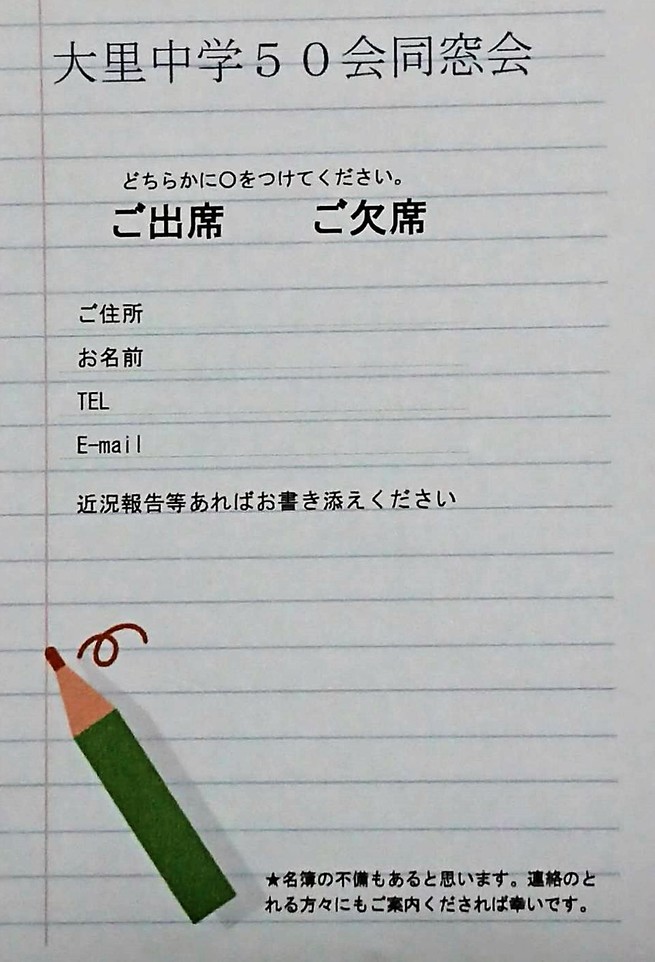 大里中学５０会同窓会
どちらかに〇をつけてください。
ご出席　ご欠席
ご住所
お名前
TEL
E-mail
近況報告等あればお書き添えください
★名簿の不備もあると思います。連絡のと
れる方々にもご案内くだされば幸いです。